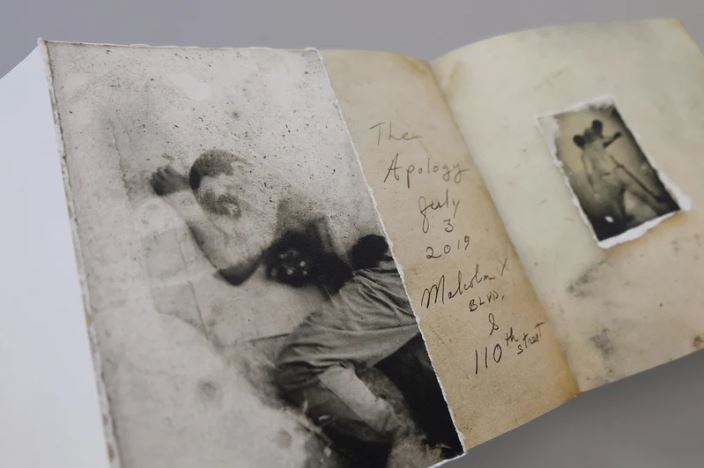 The
Apology
July
3
2019
Malcolm X
BLVD.
&
110th street